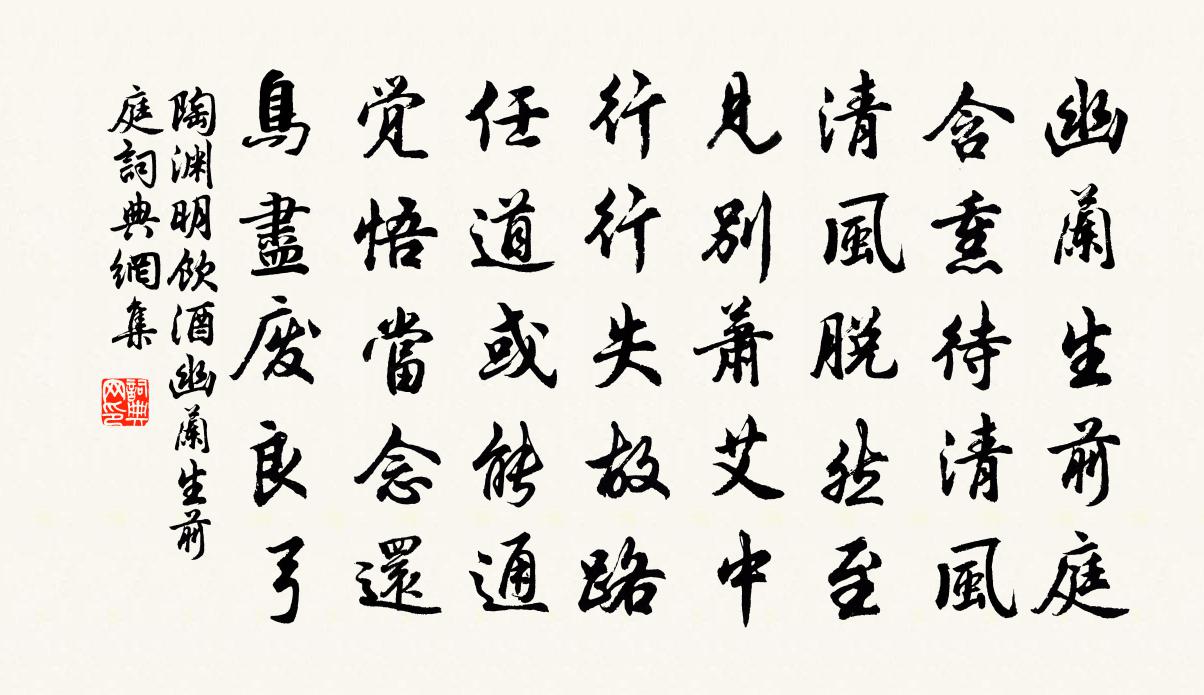 幽蘭生前庭
含熏待清風
清風脱然至
見別蕭艾中
行行失故路
任道或能通
覚悟當念還
鳥盡廃良弓
陶渊明飲酒幽蘭生前
庭詞典網集
詞典
网印